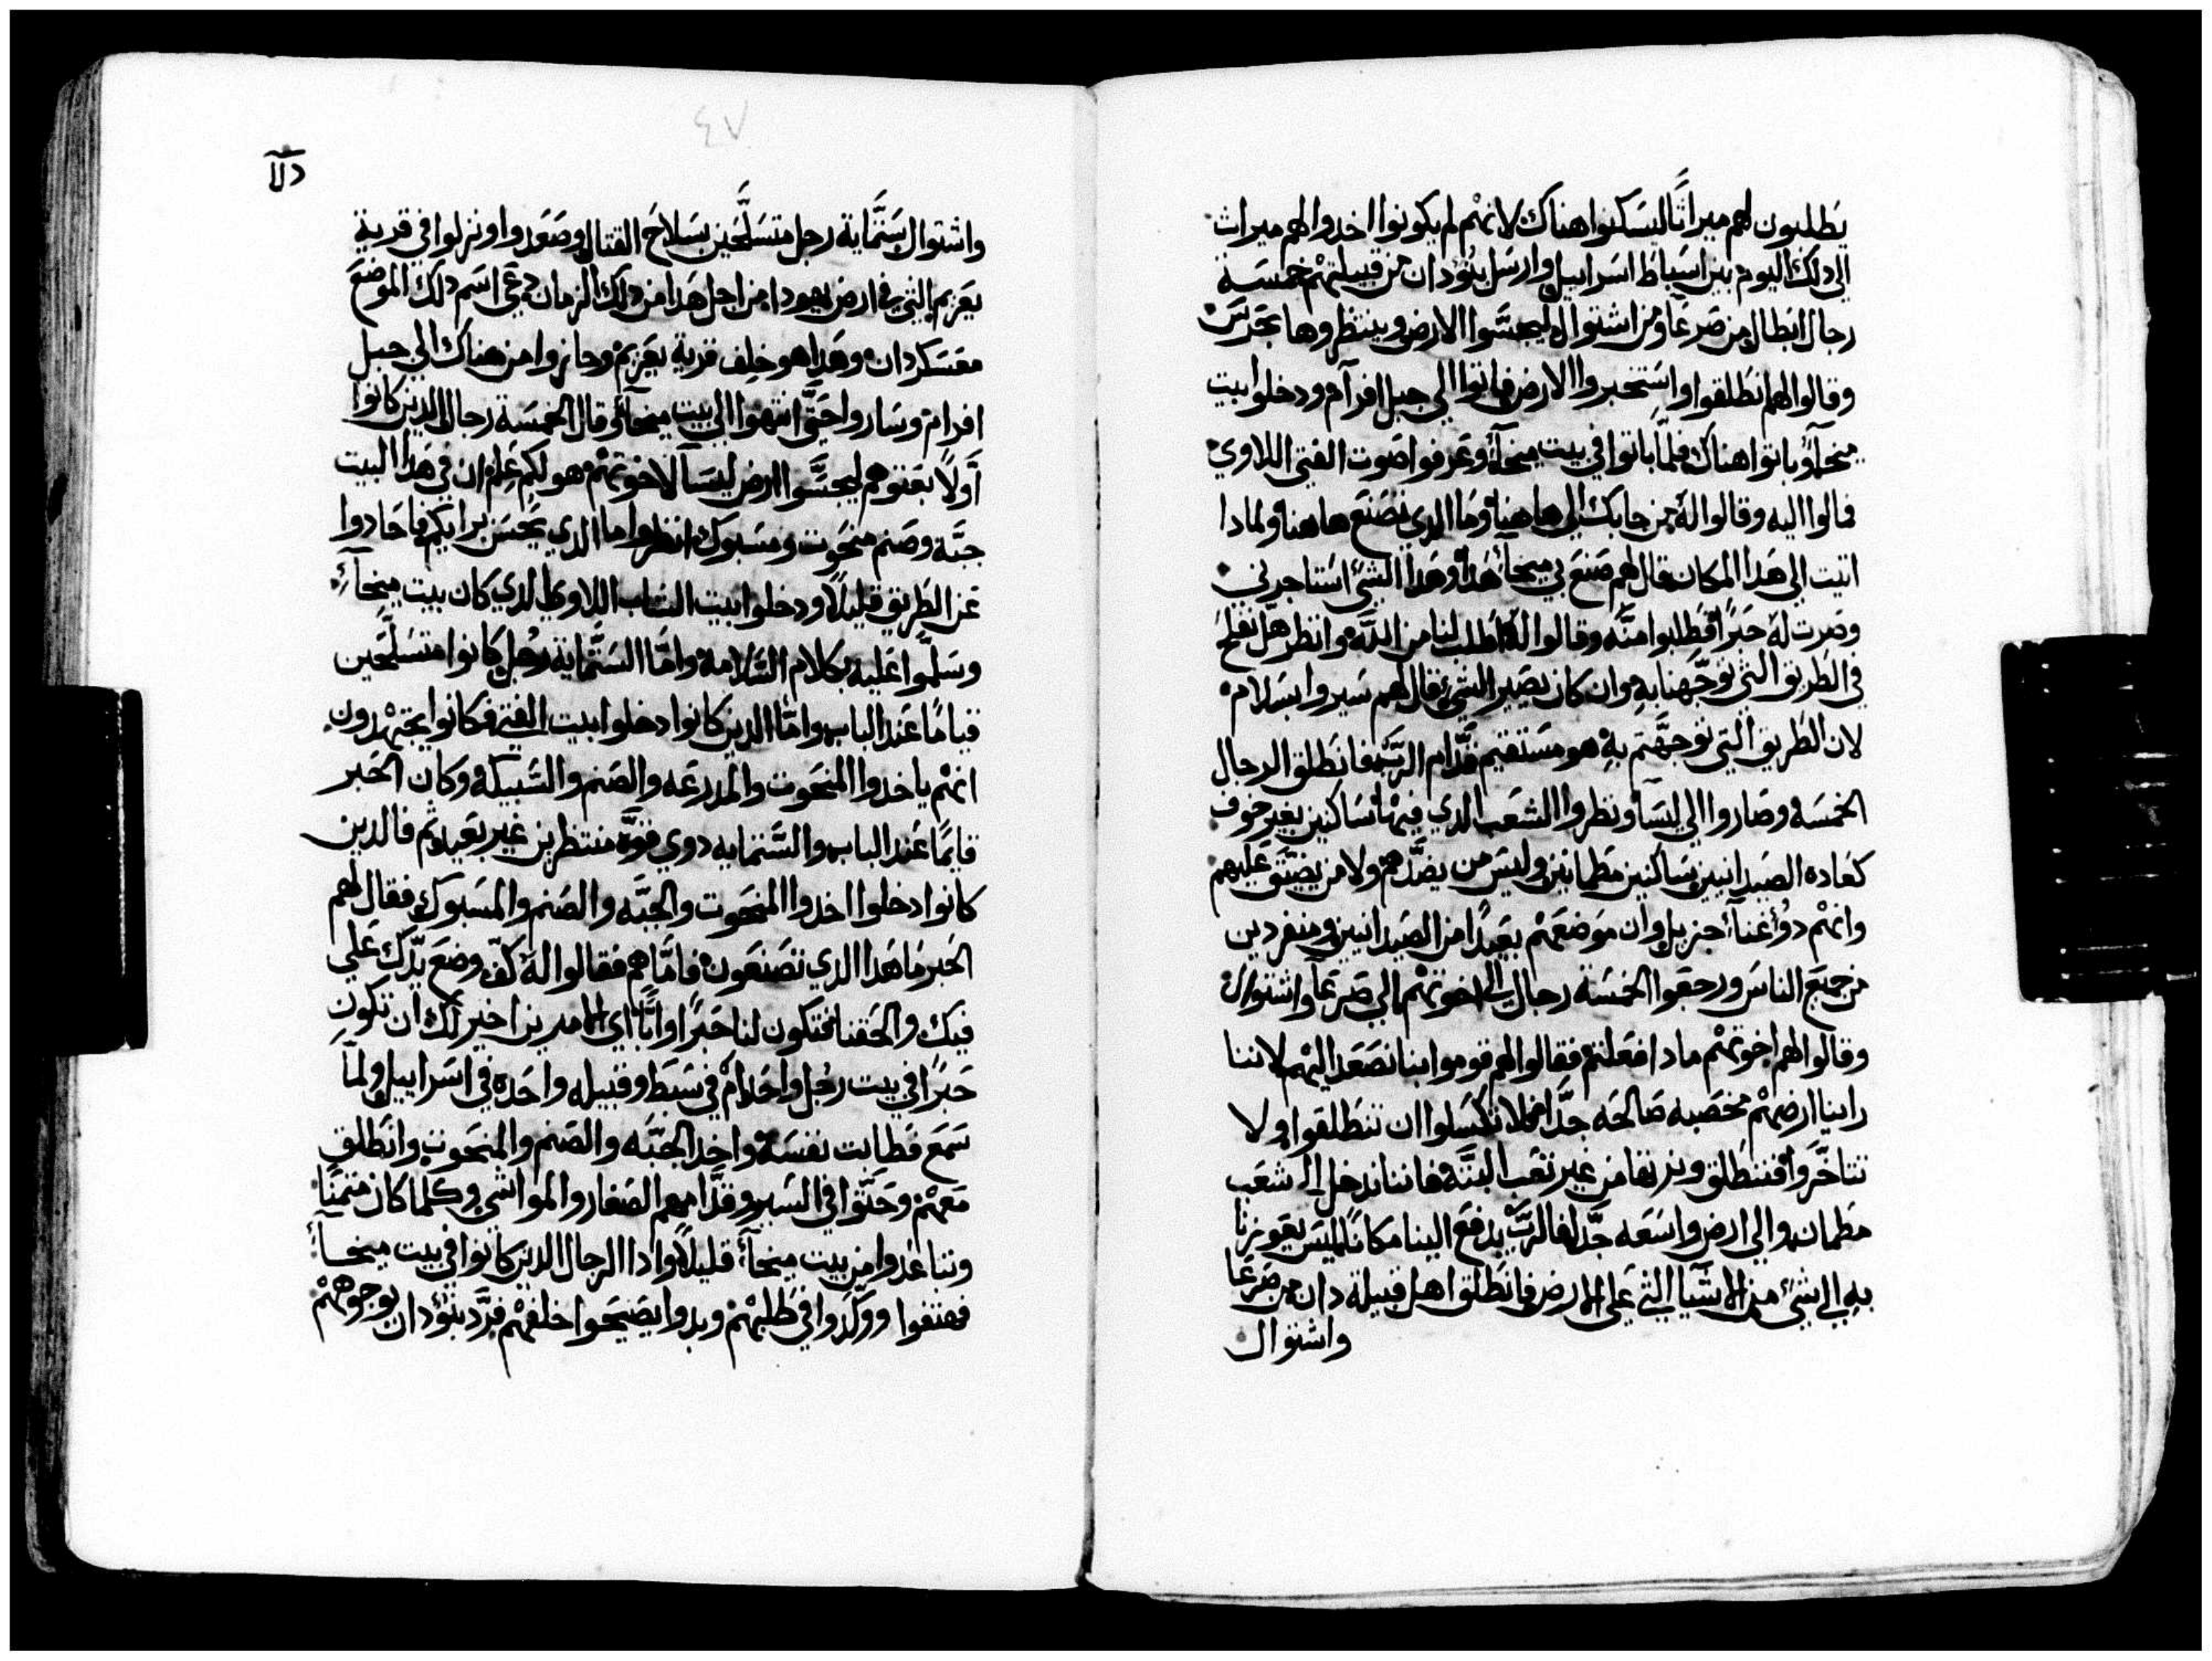 يَطلبون لهم ميراثًا ليسَكنوا هناك لانهْم لم يكونوا اخدوا لهم ميراث
الي دلك اليوم بين اسَباط اسَراييل وارسَل بنُوْدان من قبيلتهْم خمسَة
رجال ابطال من صَرعَا ومن اشتوال ليجسَّوا الارض وينتظروها بحَرسَ
وقالوا لهم انطلقوا واسَتخبروا الارض فاتوا الي جبل افرآم ودخلوا بيت
ميخآ وباتوا هناك فلمّا باتوا في بيت ميخآ وعَرفوا صَوت الفتي اللاوي
مالوا اليه وقالوا لهُ من جابك الي هاهنا ومَا الدي تصَنع هاهنا ولمادا
اتيت الي هَدا المكان فقال لهم صَنع بي ميخآ هَدا وهَدا الشيْ اسَتاجرني
وصَرت لهُ حَبرًا فطلبوا منَّه وقالوا لهُ اطلب لنا من اللَّه وانظر هَل نفلح
في الطَريق التي توجَّهنا بهِ وان كان يصَير الشيْ فقال لهم سَيروا بسَلام
لان الطَريق التي توجهَّتم بهِ هو مسَتقيم قدَّام الربّ فانطلق الرجال
الخمسَة وصَاروا الي ليسَا ونظروا الشعَب الدي فيهْا سَاكنين بغير خوف
كعَاده الصَيدانيين سَاكنين مطمانين وليسَ من يضَّدهم ولا من يضيَّق عَليهم
وانهْم دوُ غنآ جزيل وان موَضعَهْم بعَيدًا من الصَيدانيين ومنفردين
من جميَع الناسَ ورجعَوا الخمسَة رجال الي اخوتهْم الي صَرعَا واشتوال
وقالوا لهم اخوتهْم مادا فعَلتم فقالوا لهم قوموا بنا نصَعَد اليهْم لاننا
راينا ارضهْم مخصَبه صَالحَه جدَّا فلا تكسَلوا ان تنطَلقوا ولا
تتاخَّروا فننطَلق ونرتها من غير تعَب البتَّة فاننا ندخل الي شعَب
مطَمان والي ارض واسَعَه جدَّا فالربّ يدفعَ الينا مَكانًا ليسَ يعَوزنا
بهِ الي شيْ من الاشَيا التي عَلي الارض فانطَلق اهل قبيلة دان من صَرعَا
واشتوال
٤٧
واشتوال سَتَّماية رجل متسَلَّحين بسَلاحَ القتال وصَعَدوا ونزلوا في قرية
يعَريم التي في ارض يهودا من اجل هَدا من دلك الزمان دعَي اسَم دلك الموضعَ
معَسَكر دان وهَدا هو خلف قرية يعَريم وجازوا من هناك الي جبل
افرام وسَاروا حَتَّي انتهوا الي بيت ميخآ وقال الخمسَة رجال الدين كانوا
أولاً بعَتوهم ليجسَّوا ارض ليسَآ لاخوتهْم هو لكم عَلم ان في هَدا البيت
جبَّة وصَنم منحَوت ومسَبوك انظروا ما الدي يحَسَن برايكم فحَادوا
عَن الطَريق قليلاً ودخلوا بيت الشاب اللاوي الدي كان بيت ميخآ
وسَلَّموا عَليه بكلام السَّلامة وامَّا السَتَّماية رجُل كانوا متسَلَّحَين
قيامًا عَند الباب وامّا الدين كانوا دخلوا بيت الفتي فكانوا يجتهْدون
انهْم ياخدوا المنحَوت والمدرعَه والصَنم والسَّبيكة وكان الحَبر
قايمًا عَند الباب والسَّتمايه دوي قوَّه منتظرين غير بعَيد ثم فالدين
كانوا دخلوا اخدوا المنحَوت والجبَّه والصَنم والمسَبوك فقال لهم
الحَبر مَا هَدا الدي تصَنعَون فامَّا هم فقالوا لهُ كفّ وضعَ يدَّك عَلي
فيك والحَقنا فتكون لنا حَبرًا وابًا اي الامرين اخير لك ان تكون
حَبرًا في بيت رجُل واحَد امْ في سَبط وقبيله واحَده في اسَراييل ولمآ
سَمعَ فطابت نفسَهُ واخد الجبَّه والصَنم والمنحَوت وانطَلق
مَعَهْم وحَثّوا في السَير وقدَّامهم الصَغار والمواشي وكلما كان متمنًا
وتباعَدوا من بيت ميخآ قليلاً وادا الرجال الدين كانوا في بيت ميخآ
فهتفوا ووكَّدوا في طَلبهْم وبدوا يصَيحَوا خلفهْم فردَّ بنُوْدان بوجوههْم